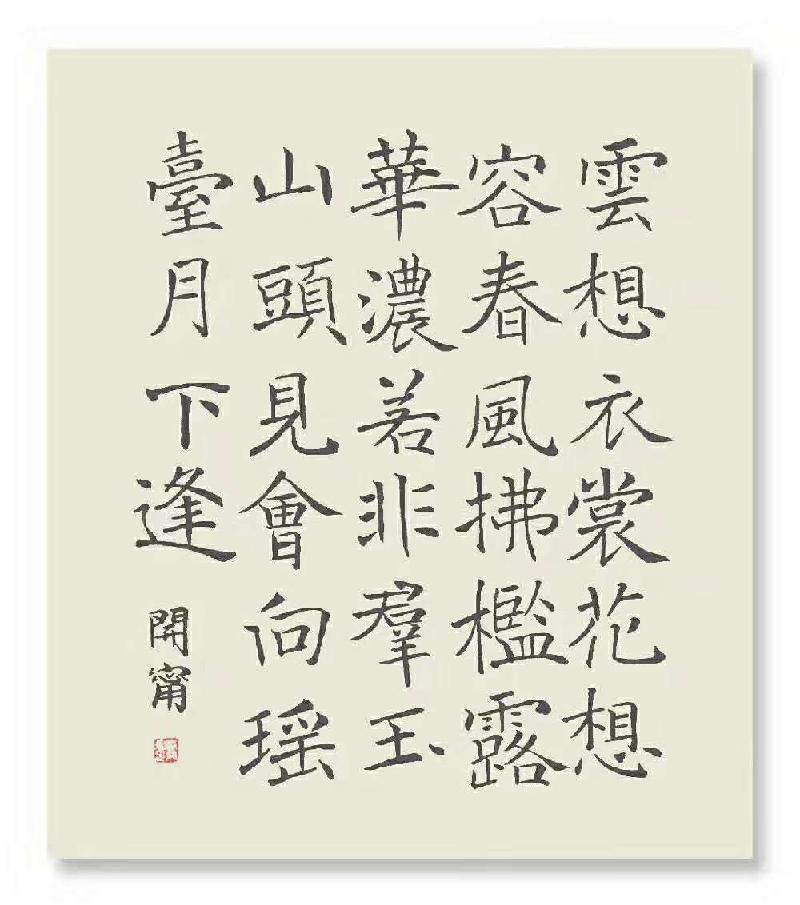 雲想衣裳花想
容春風拂檻露
華濃若非羣玉
山頭見會向瑶
臺月下逢
開甯